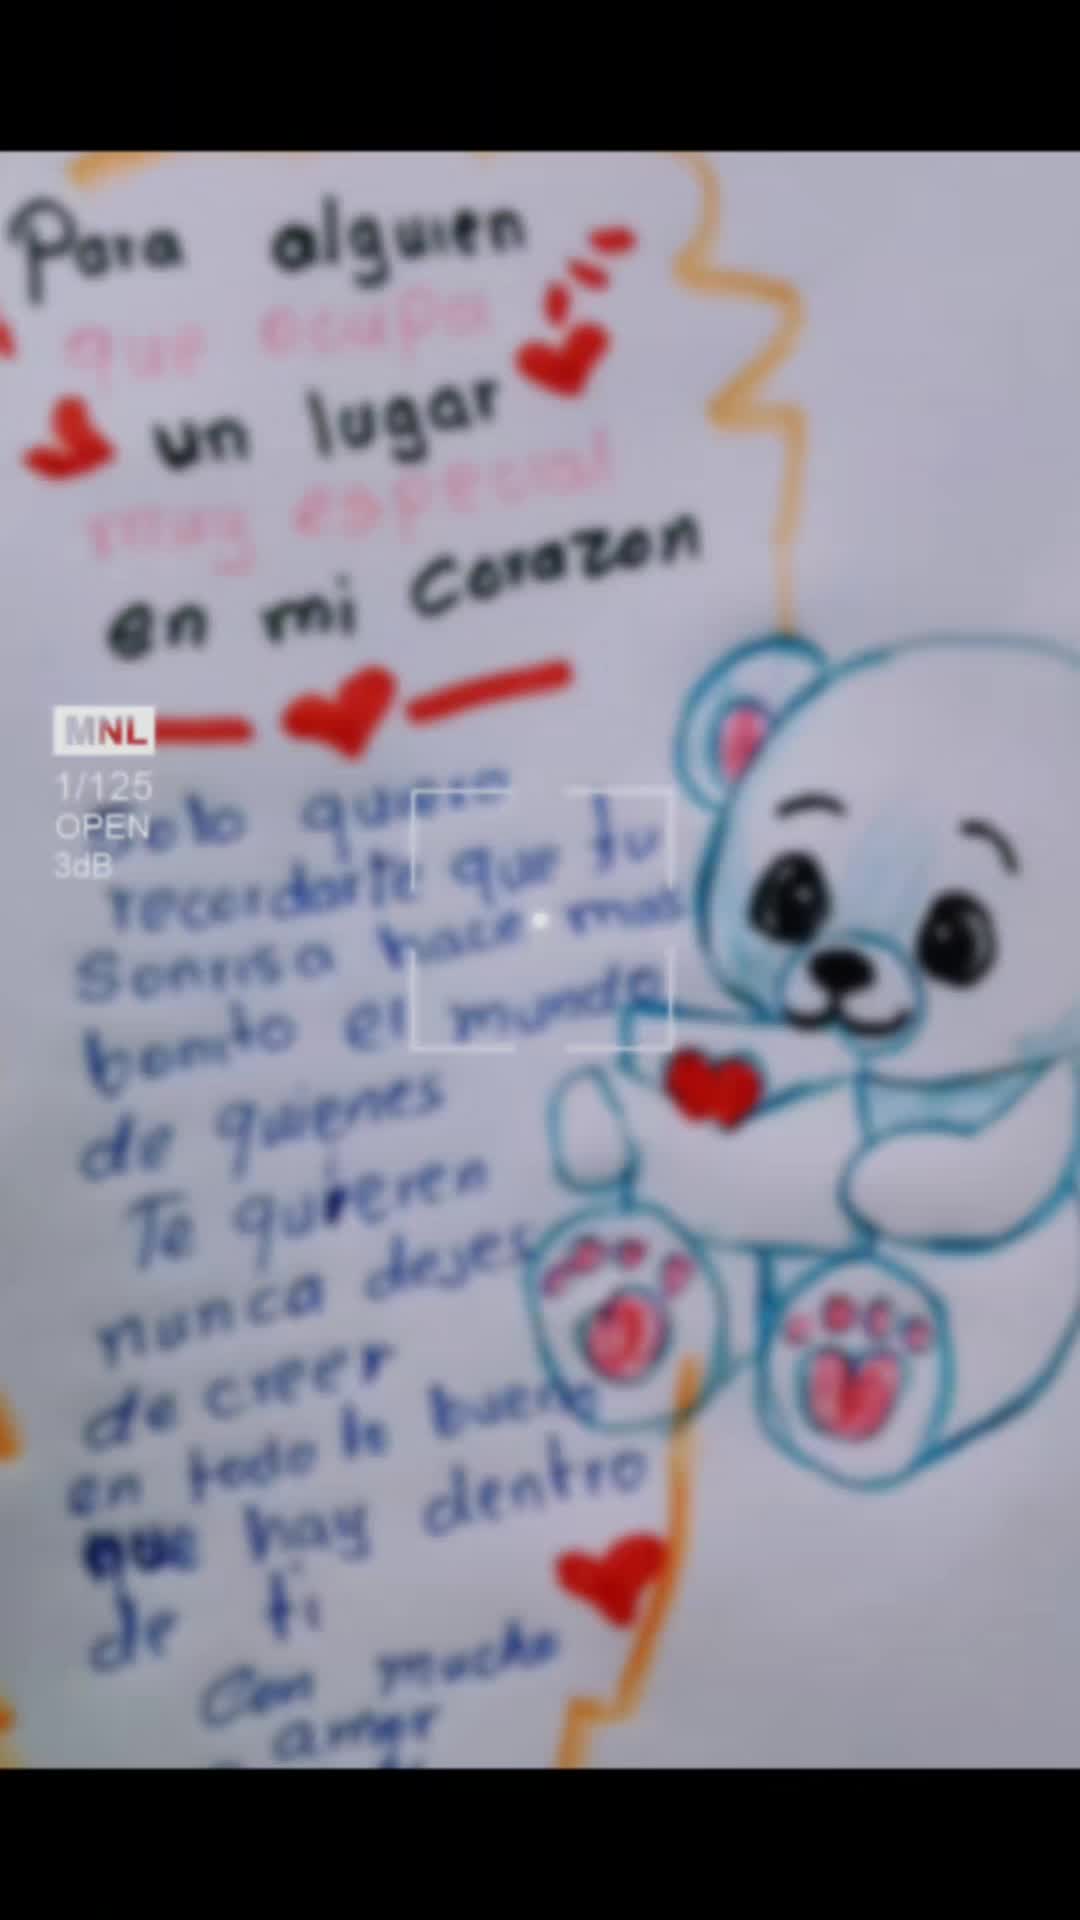 Para alguien
que ocupa
un lugar
muy especial
en mi corazon
MNL
1/125
OPEN
3dB
Solo quiero
recordarte que tu
Sonrisa hace mas
bonito el mundo
de quienes
Te quieren
nunca dejes
de creer
en todo lo bueno
que hay dentro
de ti
Con mucho
amor